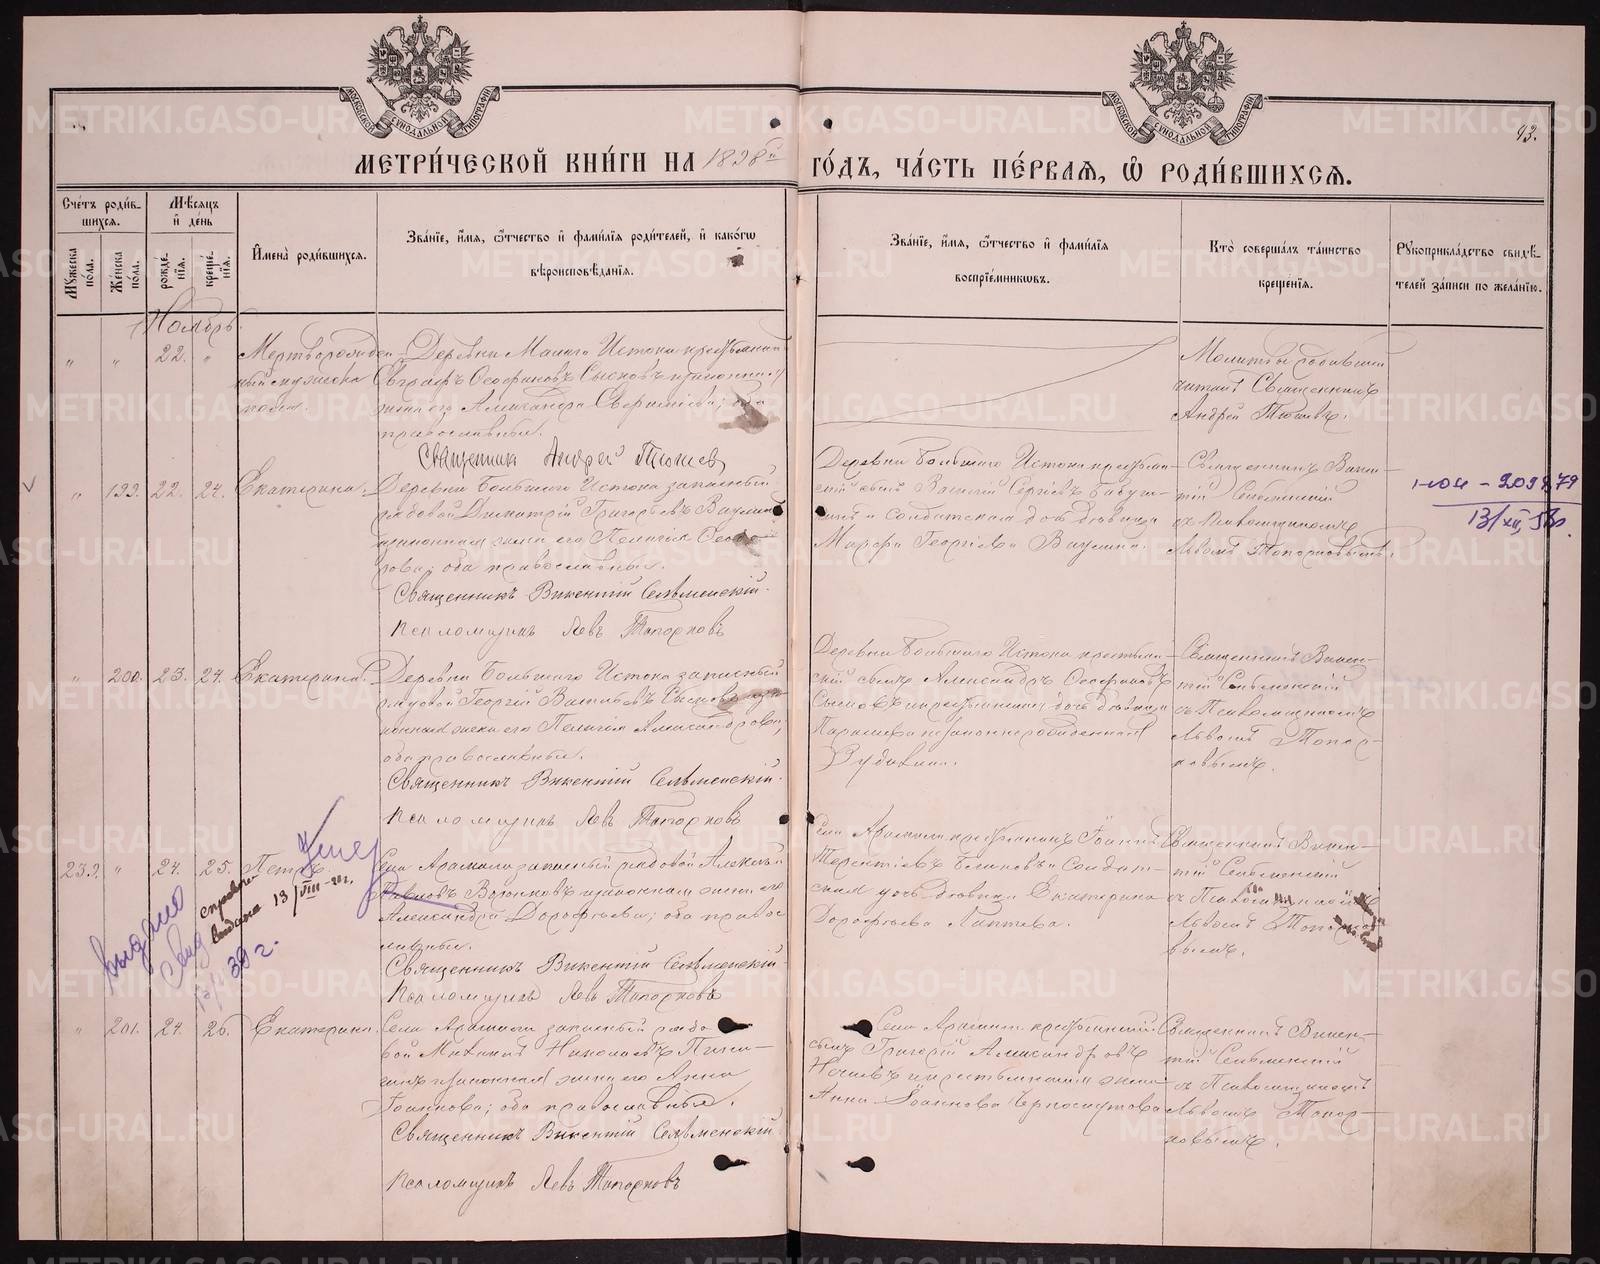 МОСКОВСКОЙ СѴНОДАЛЬНОЙ ТИПОГРАФІИ
МОСКОВСКОЙ СѴНОДАЛЬНОЙ ТИПОГРАФІИ
93.
МЕТРИ́ЧЕСКОЙ КНИ́ГИ НА 1898й ГО́ДЪ, ЧА́СТЬ ПЕ́РВАЯ, Ѡ РОДИ́ВШИХСЯ.
Сче́тъ роди́вшихся.
Мѣ́сяцъ и де́нь
Му́жеска по́ла.
Же́нска по́ла.
рожде́нїя.
креще́нїя.
И҆мена̀ роди́вшихся.
Зва́нїе, и҆́мя, ѻ҆́тчество и҆ фами́лїя роди́телей, и҆ како́гѡ вѣроисповѣ́данїя.
Зва́нїе, и҆́мя, ѻ҆́тчество и҆ фами́лїя воспрїе́мникѡвъ.
Кто̀ соверша́лъ та́инство креще́нїя.
Рꙋкоприкла́дство свидѣ́телей за́писи по жела́нїю.
Ноябрь.
" " 22. "
Мертворожден-
ный мужеска
пола.
Деревни Малаго Истока крестьянин
Евграфъ Феофановъ Сысковъ и законная
жена его Александра Северьянова; оба
православные.
Священник Андрей Тюшев
Молитвы родившей
читалъ Священникъ
Андрей Тюшевъ.
" 199. 22. 24. Екатерина.
Деревни Большаго Истока запасный
рядовой Димитрій Григорьевъ Ваулин
и законная жена его Пелагія Феодо-
рова; оба православные.
Священникъ Викентій Сельменскій.
Псаломщикъ Левъ Топорковъ
Деревни Большаго Истока крестьян-
скій сынъ Василій Сергіевъ Бабуш-
кинъ и солдатская дочь девица
Марфа Георгіева Ваулина.
Священникъ Викен-
тій Сельменскій
съ Псаломщикомъ
Львомъ Топорковымъ.
13/XII, 58г.
" 200. 23. 24. Екатерина.
Деревни Большаго Истока запасный
рядовой Георгій Васильевъ Сысковъ и за-
конная жена его Пелагія Александрова;
оба православные.
Священникъ Викентій Сельменскій.
Псаломщикъ Левъ Топорковъ
Деревни Большаго Истока крестьян-
скій сынъ Александръ Феофановъ
Сысковъ и крестьянская дочь девица
Параскева незаконнорожденная
Священникъ Викен-
тій Сельменскій
съ Псаломщикомъ
Львомъ Топор-
ковымъ.
233. " 24. 25. Петръ.
Умер
Села Арамили запасный рядовой Алексей
Воронковъ и законная жена его
Александра Дорофеева; оба правос-
лавные.
Священникъ Викентій Сельменскій
Псаломщикъ Левъ Топорковъ
Села Арамили крестьянинъ Іоаннъ
Терентіевъ и Солдат-
ская дочь девица Екатерина
Дорофеева Лаптева.
Священникъ Викен-
тій Сельменскій
съ Псаломщикомъ
Львомъ Топорко-
вымъ.
выдано
свид
39 г.
справка
выдана 13/VIII
" 201. 24. 26. Екатерина.
Села Арамили запасный рядо-
вой Михаилъ Николаевъ
и законная жена его Анна
Іоаннова; оба православные.
Священникъ Викентій Сельменскій.
Псаломщикъ Левъ Топорковъ
Села Арамили крестьянскій
сынъ Григорій Александровъ
и крестьянская жена
Анна Іоаннова Черноскутова
Священникъ Викен-
тій Сельменскій
съ Псаломщикомъ
Львомъ Топор-
ковымъ.
METRIKI.GASO-URAL.RU